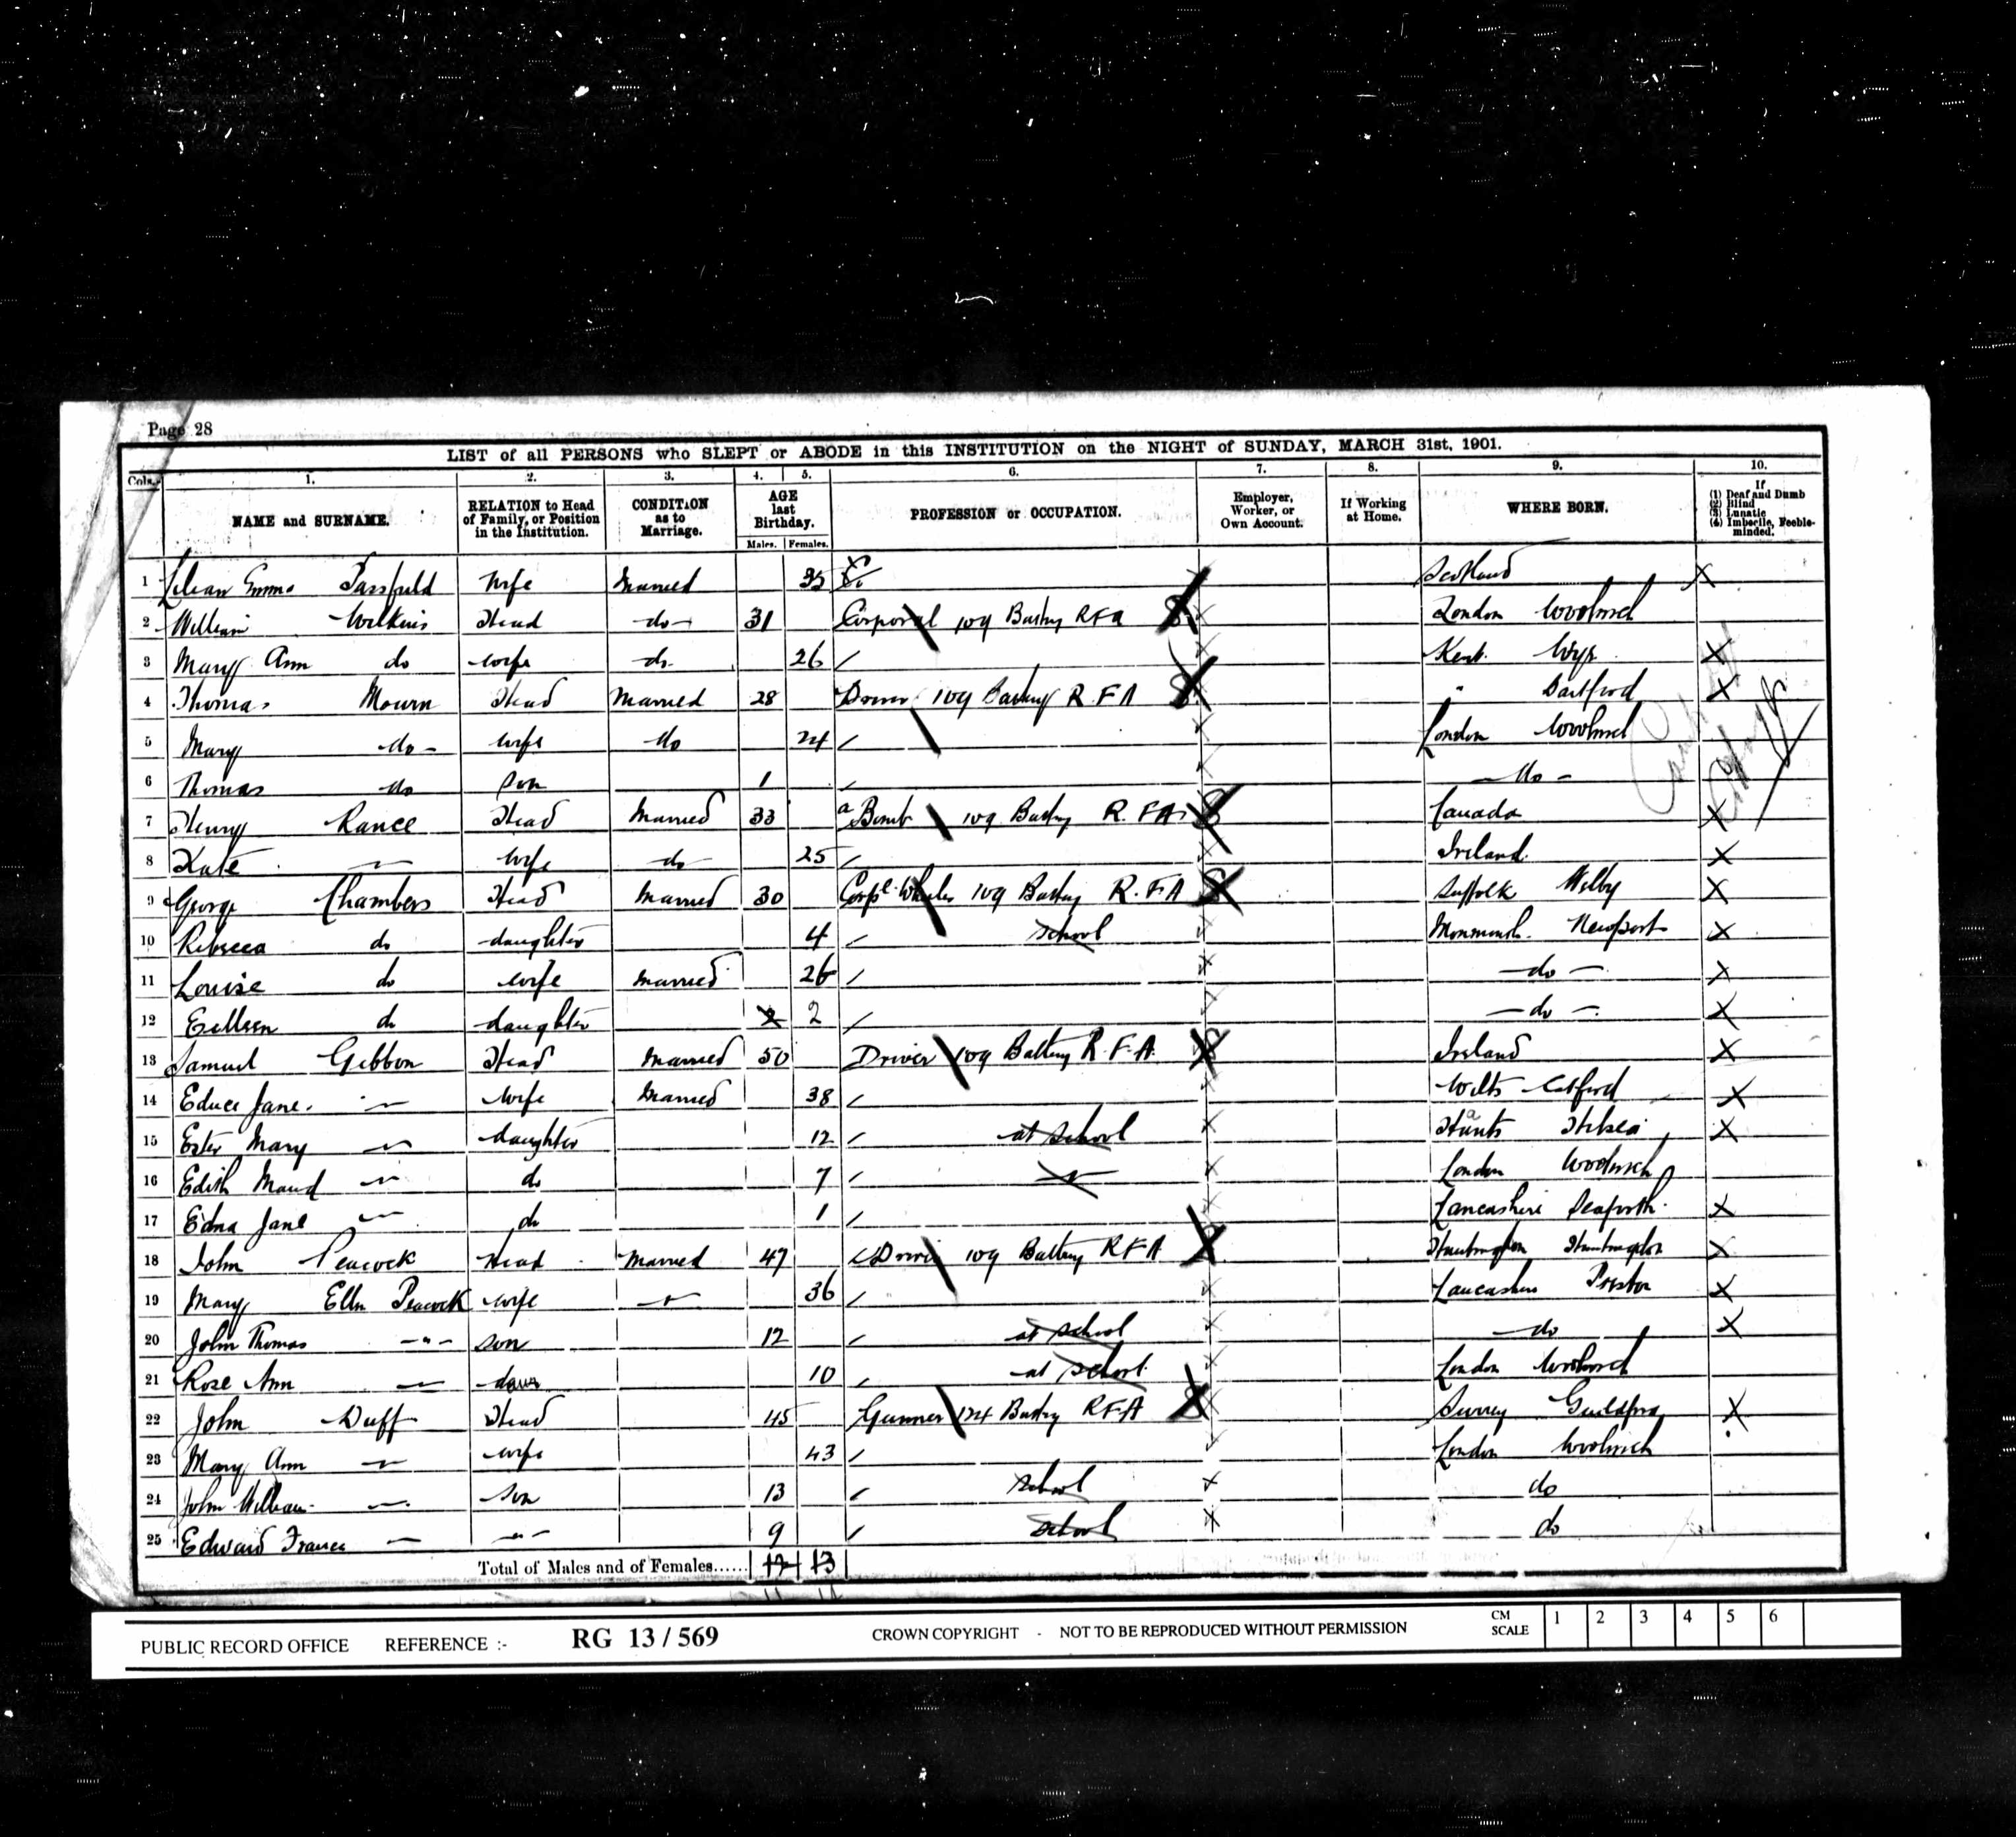 Page 28
LIST of all PERSONS who SLEPT or ABODE in this INSTITUTION on the NIGHT of SUNDAY, MARCH 31st, 1901.
Cols. 1. 2. 3. 4. 5. 6. 7. 8. 9. 10.
NAME and SURNAME. RELATION to Head of Family, or Position in the Institution. CONDITION as to Marriage. AGE last Birthday. Males. Females. PROFESSION or OCCUPATION. Employer, Worker, or Own Account. If Working at Home. WHERE BORN. If (1) Deaf and Dumb (2) Blind (3) Lunatic (4) Imbecile, Feeble-minded.
1 Lilian Emma Passfield Wife Married 35 Scotland X
2 William Wilkins Head do 31 Corporal 109 Battry RFA London Woolwich
3 Mary Ann do wife do 26 Kent Wye X
4 Thomas Mourn Head Married 28 Driver 109 Battery R.F.A " Dartford X
5 Mary do wife do 24 London Woolwich
6 Thomas do Son 1 do
7 Henry Rance Head Married 33 a Bomb 109 Battry R.F.A. Canada X
8 Kate wife do 25 Ireland X
9 George Chambers Head Married 30 Corpl Wheeler 109 Battry R.F.A Suffolk X
10 Rebecca do daughter 4 school Monmouth Newport X
11 Louise do wife Married 26 do X
12 Eilleen do daughter 2 2 do X
13 Samuel Gibbon Head Married 50 Driver 109 Battery R.F.A. Ireland X
14 Jane wife Married 38 Wilts X
15 Ester Mary daughter 12 at school X
16 Edith Maud do 7 London Woolwich
17 Edna Jane do 1 Lancashire Seaforth X
18 John Peacock Head Married 47 Driver 109 Battery RFA Huntingdon Huntingdon X
19 Mary Ellen Peacock wife 36 Lancashire Preston X
20 John Thomas -"- son 12 at school do X
21 Rose Ann daur 10 at school London Woolwich
22 John Duff Head 45 Gunner 124 Battry RFA Surrey Guildford X
23 Mary Ann wife 43 London Woolwich
24 John William son 13 school do
25 Edward Francis -"- 9 school do
Total of Males and of Females...... 12 13
PUBLIC RECORD OFFICE REFERENCE :- RG 13 / 569 CROWN COPYRIGHT - NOT TO BE REPRODUCED WITHOUT PERMISSION CM SCALE 1 2 3 4 5 6